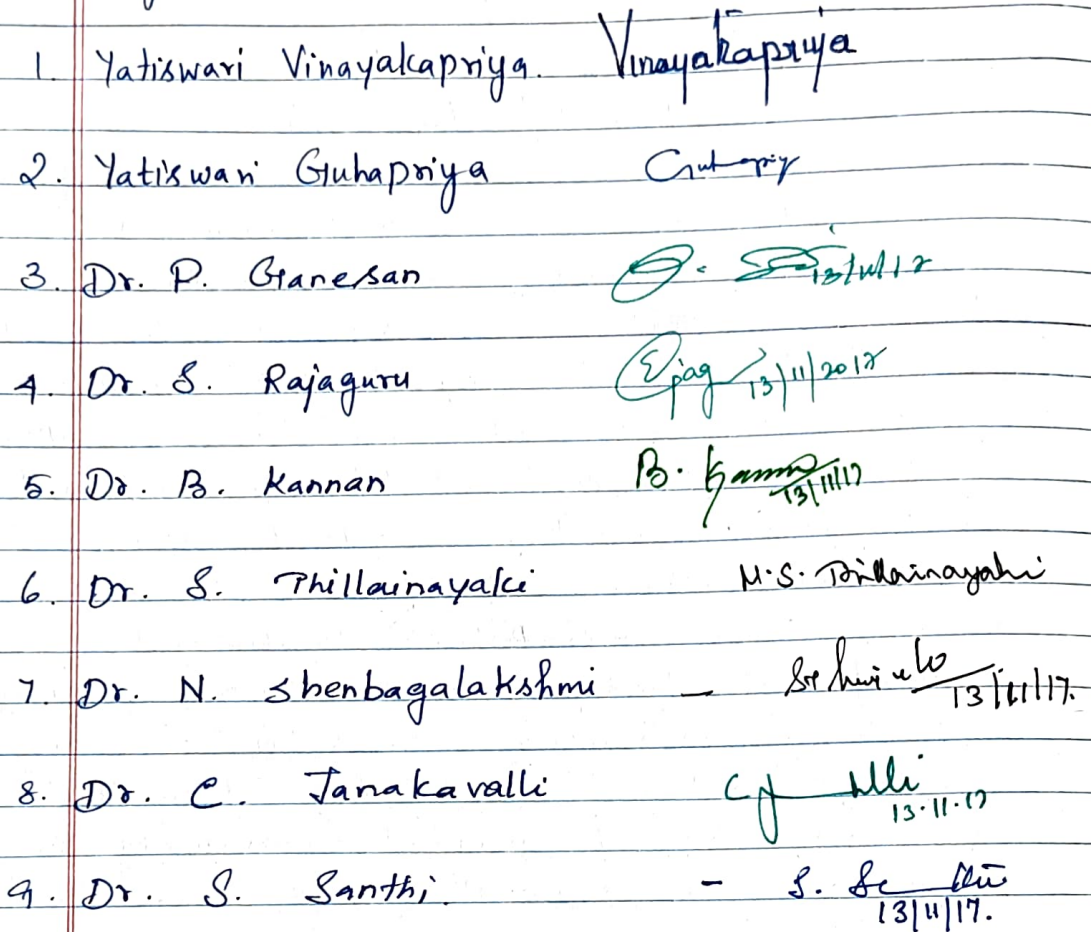 1. Yatiswari Vinayakapriya. Vinayakapriya
2. Yatiswari Guhapriya Guhapriy
3. Dr. P. Ganesan 13/11/17
4. Dr. S. Rajaguru 13/11/2017
5. Dr. B. Kannan B. Kannan 13/11/17
6. Dr. S. Thillainayaki M.S. Thillainayaki
7. Dr. N. Shenbagalakshmi - 13/11/17.
8. Dr. C. Janakavalli 13.11.17
9. Dr. S. Santhi. - S. 13/11/17.